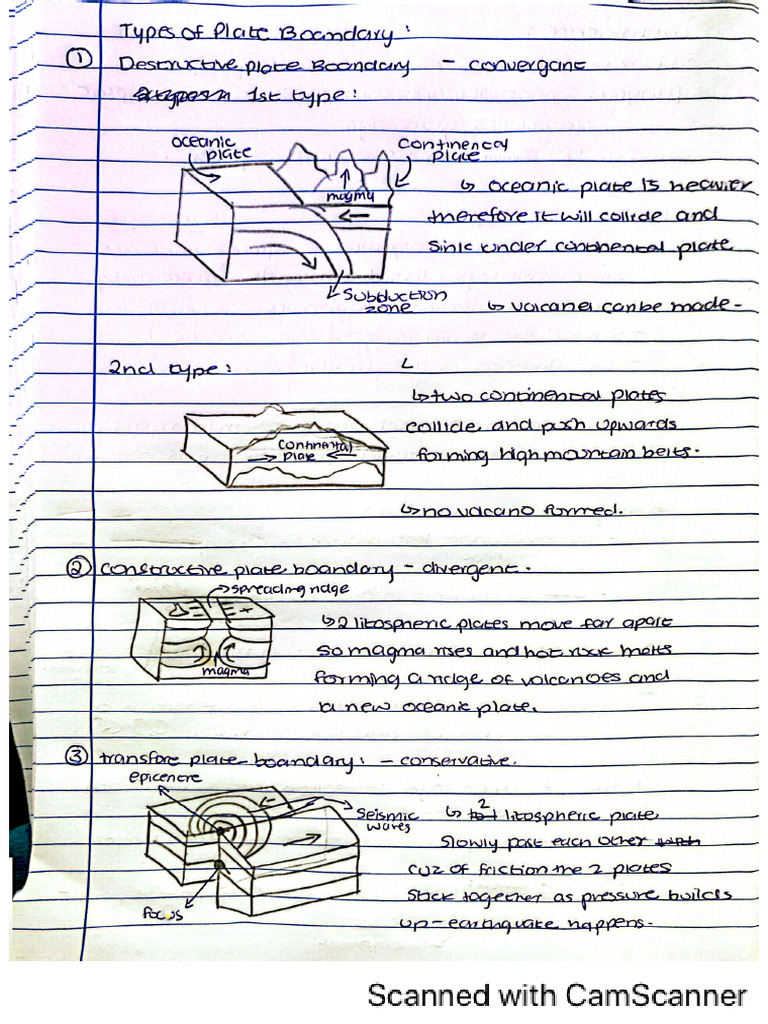 Types of Plate Boundary :
① Destructive plate Boundary - convergant
1st type :
oceanic plate
continental plate
magma
subduction zone
↳ oceanic plate is heavier
therefore it will collide and
sink under continental plate
↳ volcanoes can be made -
2nd type :
continental plate
↳ two continental plates
collide, and push upwards
forming high mountain belts.
↳ no volcano formed.
② constructive plate boundary - divergent.
spreading ridge
magma
↳ 2 litospheric plates move far apart
so magma rises and hot rock melts
forming a ridge of volcanoes and
a new oceanic plate.
③ transfore plate boundary : - conservative.
epicentre
seismic waves
focus
↳ 2 litospheric plate,
slowly past each other with
cuz of friction the 2 plates
stick together as pressure builds
up - earthquake happens.
Scanned with CamScanner